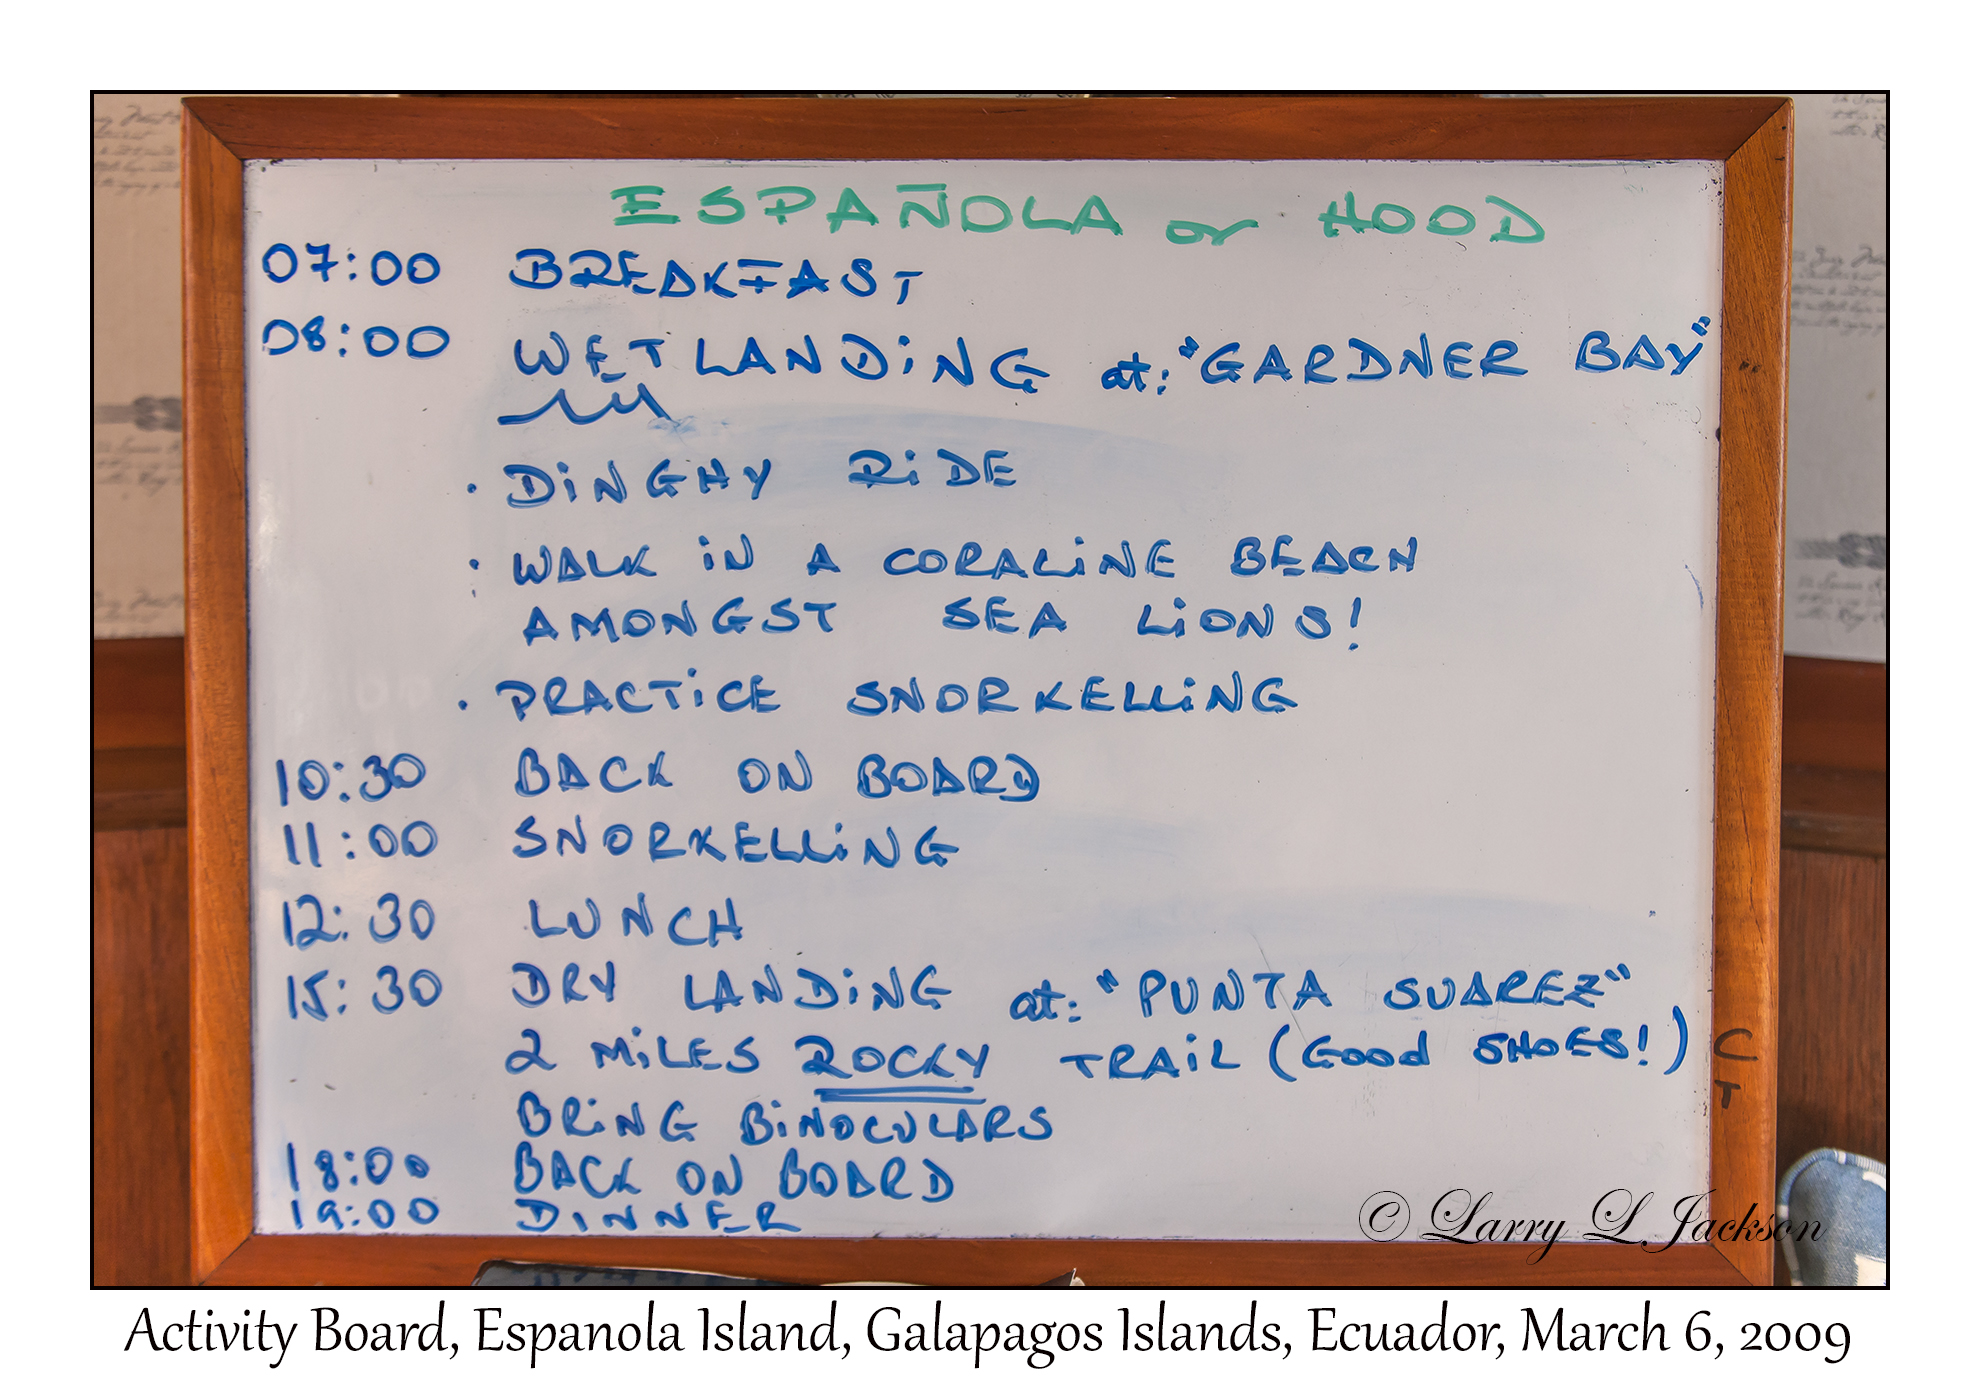 ESPAÑOLA or HOOD
07:00 BREAKFAST
08:00 WET LANDING at: "GARDNER BAY"
· DINGHY RIDE
· WALK IN A CORALINE BEACH
AMONGST SEA LIONS!
· PRACTICE SNORKELLING
10:30 BACK ON BOARD
11:00 SNORKELLING
12:30 LUNCH
15:30 DRY LANDING at: "PUNTA SUAREZ"
2 MILES ROCKY TRAIL (GOOD SHOES!)
BRING BINOCULARS
18:00 BACK ON BOARD
19:00 DINNER
C
T
© Larry L Jackson
Activity Board, Espanola Island, Galapagos Islands, Ecuador, March 6, 2009